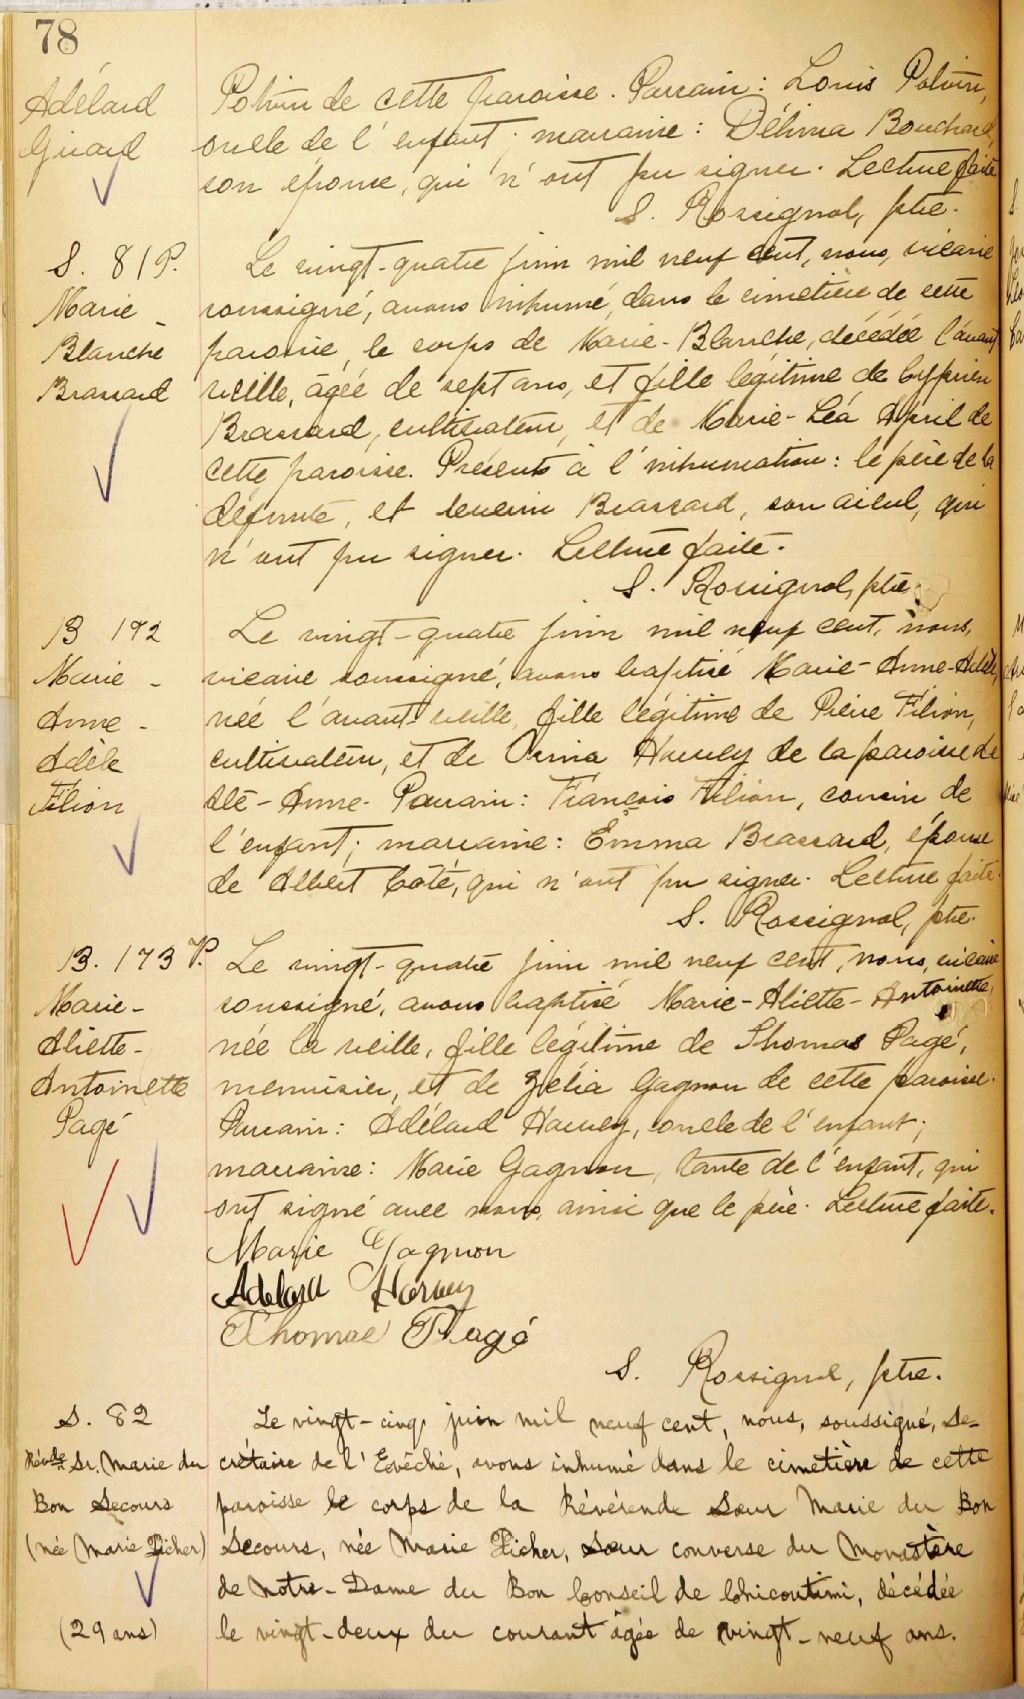 78
Adélard
Girard
Potvin de cette paroisse. Parrain: Louis Potvin,
oncle de l'enfant; marraine: Délima Bouchard,
son épouse, qui n'ont pu signer. Lecture faite
S. Rossignol, ptre.
S. 81 P.
Marie-
Blanche
Brassard
Le vingt-quatre juin mil neuf cent, nous, vicaire
soussigné, avons inhumé, dans le cimetière de cette
paroisse, le corps de Marie-Blanche, décédée l'avant
veille, âgée de sept ans, et fille légitime de Cyprien
Brassard, cultivateur, et de Marie-Léa April de
cette paroisse. Présents à l'inhumation: le père de la
défunte, et Brassard, son aïeul, qui
n'ont pu signer. Lecture faite.
S. Rossignol, ptre
B 172
Marie-
Anne-
Adèle
Filion
Le vingt-quatre juin mil neuf cent, nous,
vicaire soussigné, avons baptisé Marie-Anne-Adèle,
née l'avant-veille, fille légitime de Pierre Filion,
cultivateur, et de Harvey de la paroisse de
Ste-Anne. Parrain: François Filion, cousin de
l'enfant; marraine: Emma Brassard, épouse
de Albert Côté, qui n'ont pu signer. Lecture faite.
S. Rossignol, ptre.
B. 173 P.
Marie-
Aliette-
Antoinette
Pagé
Le vingt-quatre juin mil neuf cent, nous, vicaire
soussigné, avons baptisé Marie-Aliette-Antoinette,
née la veille, fille légitime de Thomas Pagé,
menuisier, et de Zélia Gagnon de cette paroisse.
Parrain: Adélard Harvey, oncle de l'enfant;
marraine: Marie Gagnon, tante de l'enfant, qui
ont signé avec nous, ainsi que le père. Lecture faite.
Marie Gagnon
Adelard Harvey
Thomas Pagé
S. Rossignol, ptre.
S. 82
Révde Sr. Marie du
Bon Secours
(née Marie Picher)
(29 ans)
Le vingt-cinq juin mil neuf cent, nous, soussigné, Se-
crétaire de l'Evêché, avons inhumé dans le cimetière de cette
paroisse le corps de la Révérende Sœur Marie du Bon
Secours, née Marie Picher, Sœur converse du Monastère
de Notre-Dame du Bon Conseil de Chicoutimi, décédée
le vingt-deux du courant âgée de vingt-neuf ans.